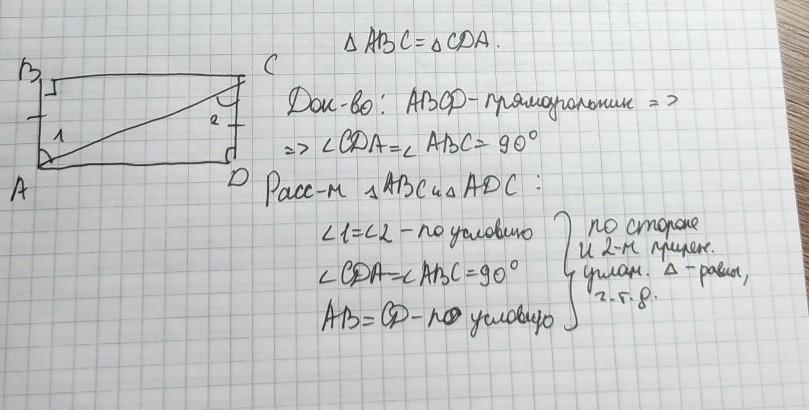 △ ABC = △ CDA.
B
C
1
2
A
D
Док-во: ABCD - прямоугольник =>
=> ∠CDA = ∠ ABC = 90°
Расс-м △ ABC и △ ADC :
∠1 = ∠2 - по условию
∠CDA = ∠ABC = 90°
AB = CD - по условию
по стороне
и 2-м прилеж.
углам. △ - равны,
ч.т.д.